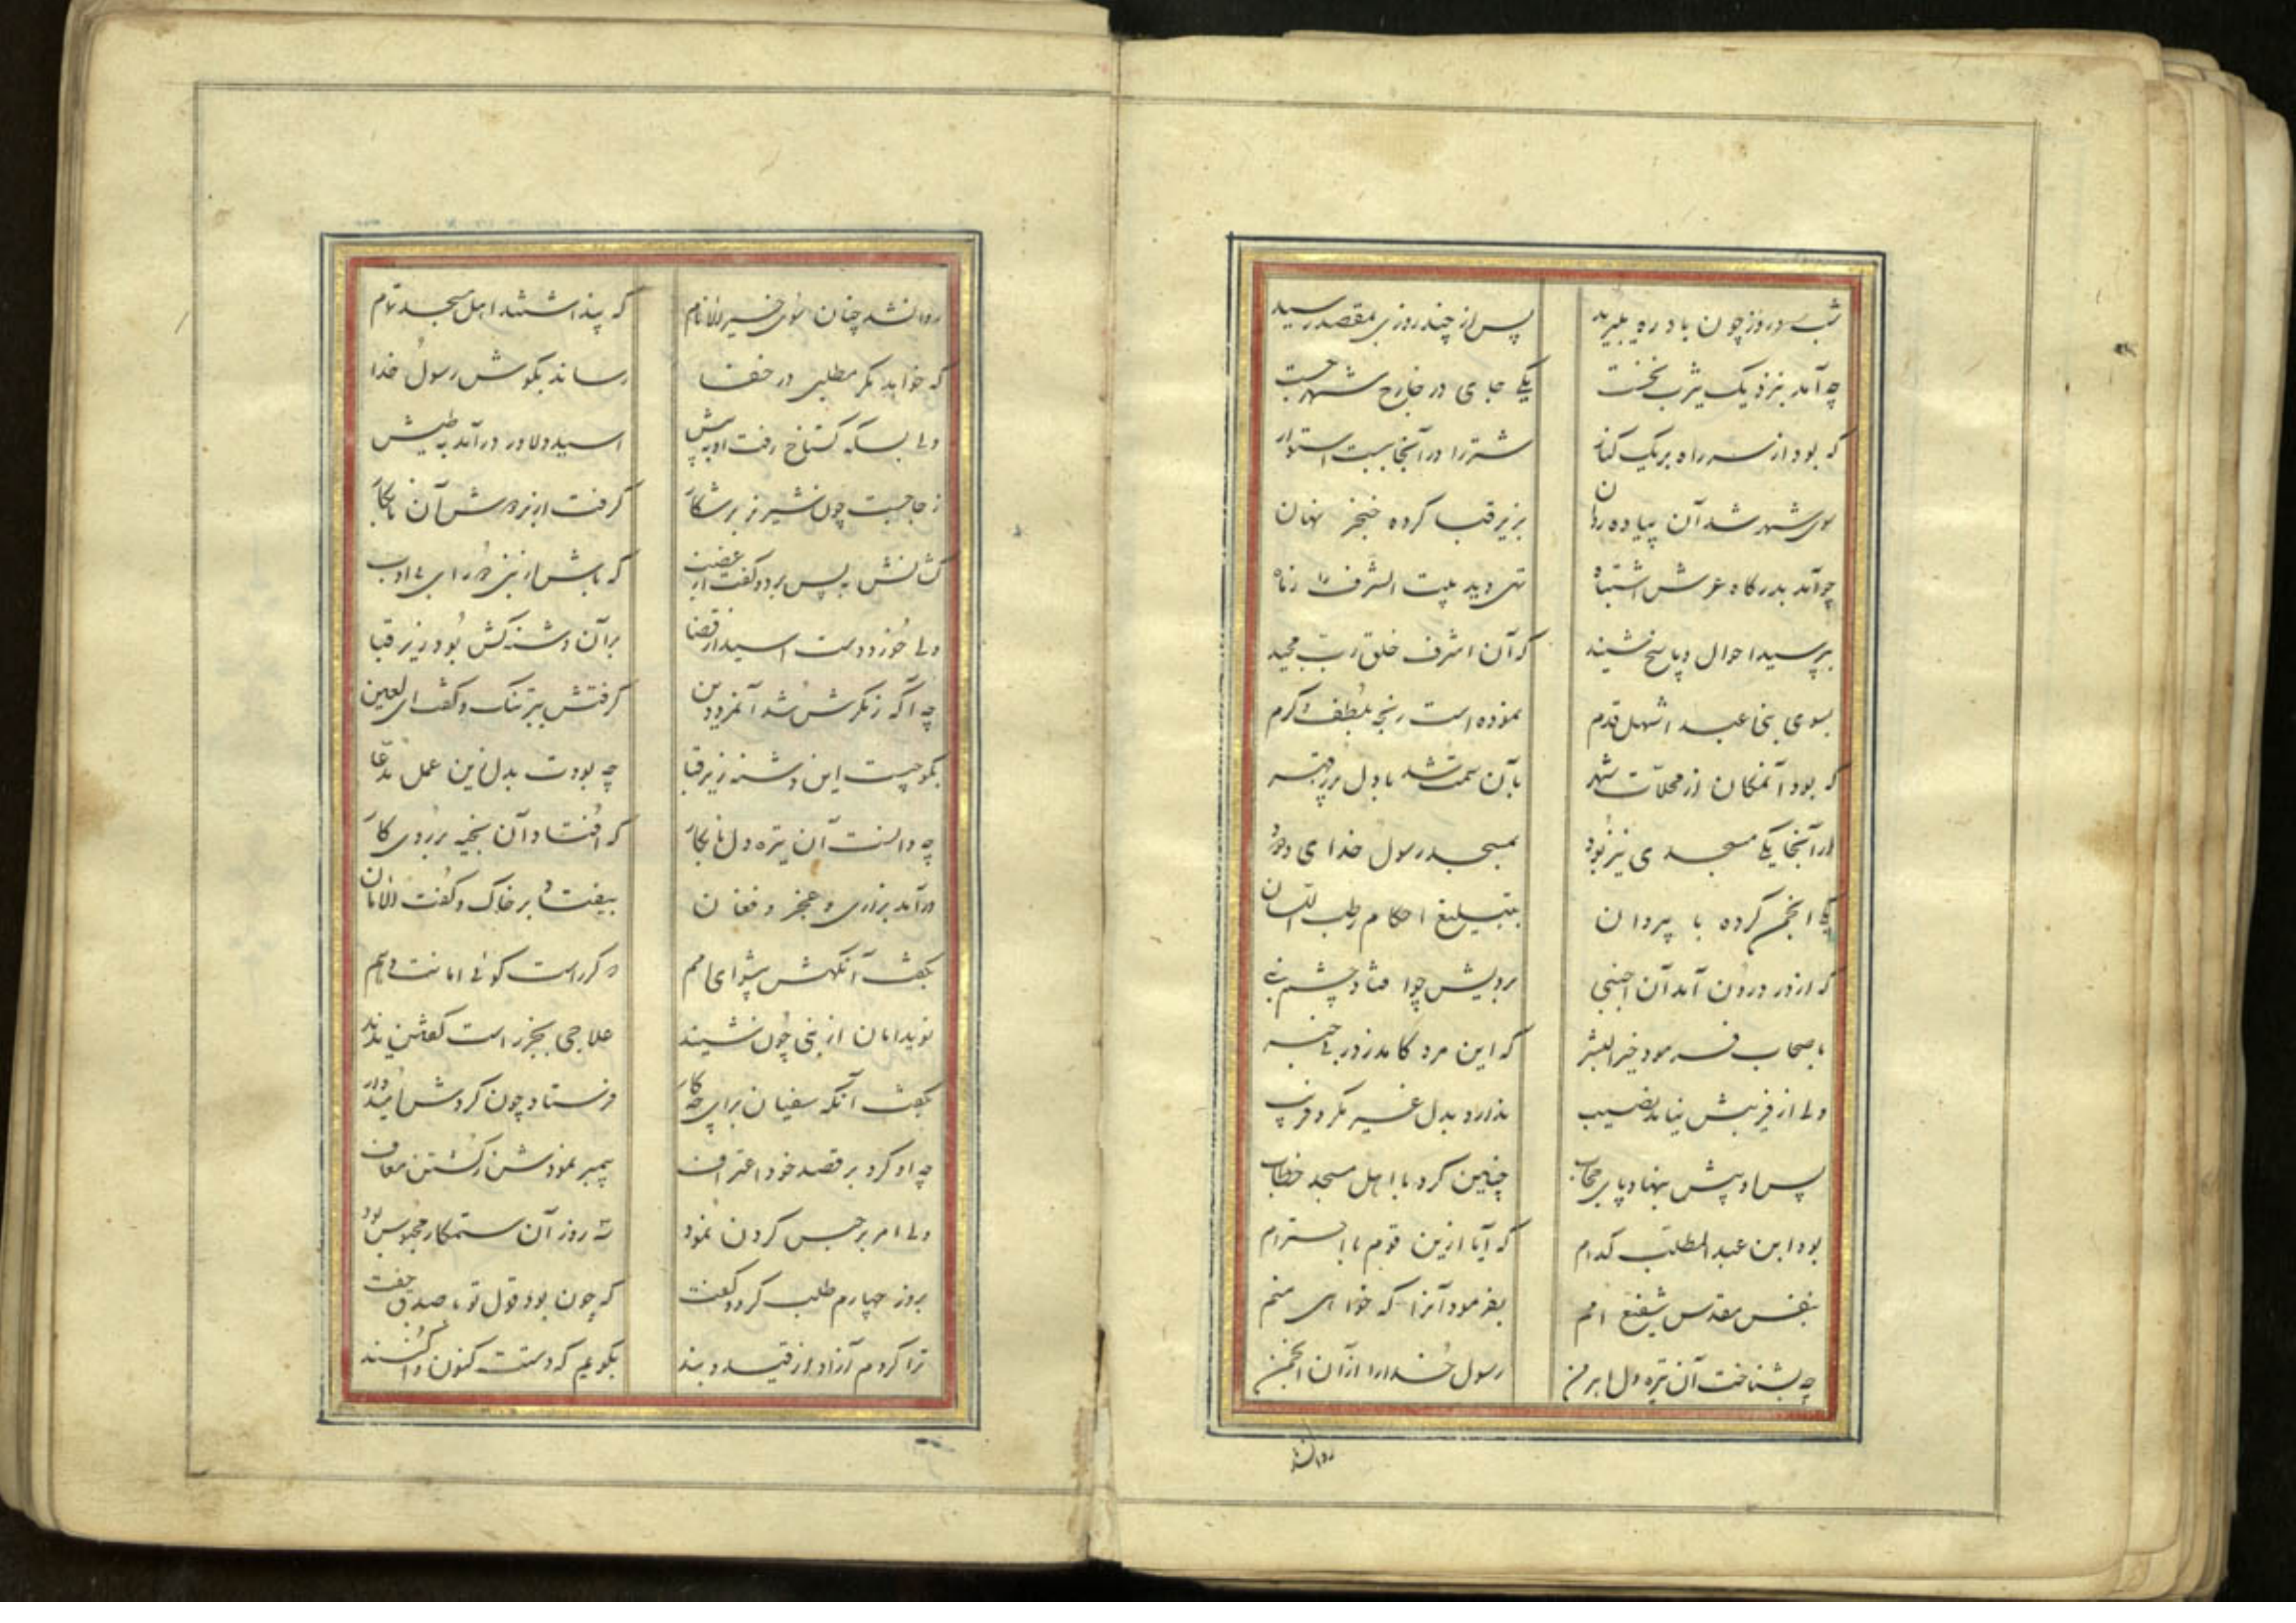 شب و روز چون باد ره می‌برید پس از چند روزی بمقصد رسید
چه آمد بنزدیک یثرب نخست یکی جای در خارج شهر جست
که بود از سر راه بر یک کنار شتر را در آنجا ببست استوار
سوی شهر شد آن پیاده روان بزیر قبا کرده خنجر نهان
چو آمد بدرگاه عرش اشتباه تهی دید بیت الشرف را ز شاه
بپرسید احوال و پاسخ شنید که آن اشرف خلق رب مجید
بسوی بنی عبد اشهل قدم نموده است رنجه بلطف و کرم
که بود آنمکان از محلات شهر بآن سمت شد با دل پر ز قهر
در آنجا یکی مسجدی نیز بود بمسجد رسول خدای ودود
یکی انجمن کرده با پیروان بتبلیغ احکام رطب اللسان
که از در درون آمد آن اجنبی برویش چو افتاد چشم نبی
باصحاب فرمود خیر البشر که این مرد کامد ز در بی خبر
ندارد بدل غیر مکر و فریب ولی از فریبش نیابد نصیب
پس او پیش بنهاد پای چنین کرد با اهل مسجد خطاب
بود ابن عبد المطلب کدام که آیا ازین قوم با احترام
بنفس مقدس شفیع امم بفرمود آنرا که خواهی منم
چه بشناخت آن تیره دل اهرمن رسول خدا را از آن انجمن
روانشد
روانشد چنان سوی خیر الانام که پنداشتند اهل مسجد تمام
که خواهد مگر مطلبی در خفا رساند بگوش رسول خدا
ولی بسکه گستاخ رفت او به پیش اسید دلاور درآمد به طیش
ز جا جست چون شیر نر بر شکار گرفت از آن نابکار
کشانش به پس برد و گفت از غضب که باش از نبی دور ای بی ادب
ولی خورد دست اسید از قضا بر آن دشنه کش بود زیر قبا
چه آگه ز مکرش شد آنمرد دین گرفتش بتر تنگ و گفت ای لعین
بگو چیست این دشنه زیر قبا چه بودت بدل زین عمل مدعا
چه دانست آن تیره دل نابکار که افتاد آن بخیه بر روی کار
درآمد بزاری و عجز و فغان بیفتاد بر خاک و گفت الامان
بگفت آنگهش پیشوای امم که گر راست گوئی امانت دهم
نوید امان از نبی چون شنید علاجی بجز راست گفتن ندید
بگفت آنکه سفیان برای چه کار فرستاد چون کردش امیدوار
چه او کرد بر قصد خود اعتراف پیمبر نمودش ز کشتن معاف
ولی امر بر حبس کردن نمود سه روز آن ستمکار محبوس بود
بروز چهارم طلب کرد و گفت که چون بود قول تو با صدق جفت
ترا کردم آزاد از قید و بند بگویم که دستت کنون واکنند